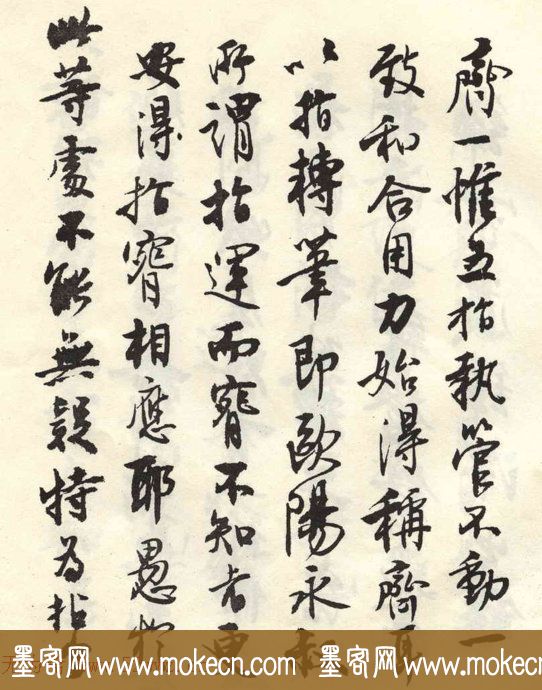 齊一惟五指執管不動一
致和合用力始得稱齊
以指轉筆即歐陽永叔
所謂指運而腕不知者更
安得指腕相應耶愚於
此等處不能無疑特為指
墨客网 www.mokecn.com 墨客网 www.mokecn.com